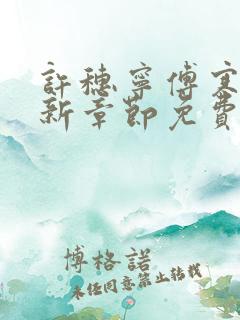 許穗寧傅寒
新章節免費
博格諾
未經同意禁止轉載